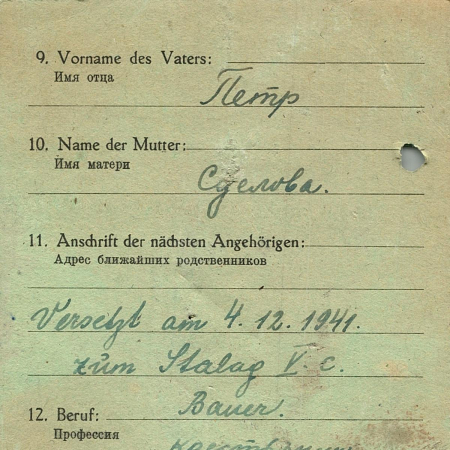 9. Vorname des Vaters:
Имя отца
Петр
10. Name der Mutter:
Имя матери
Сделова.
11. Anschrift der nächsten Angehörigen:
Адрес ближайших родственников
Versetzt am 4.12.1941.
zum Stalag V. C.
Bauer.
12. Beruf:
Профессия